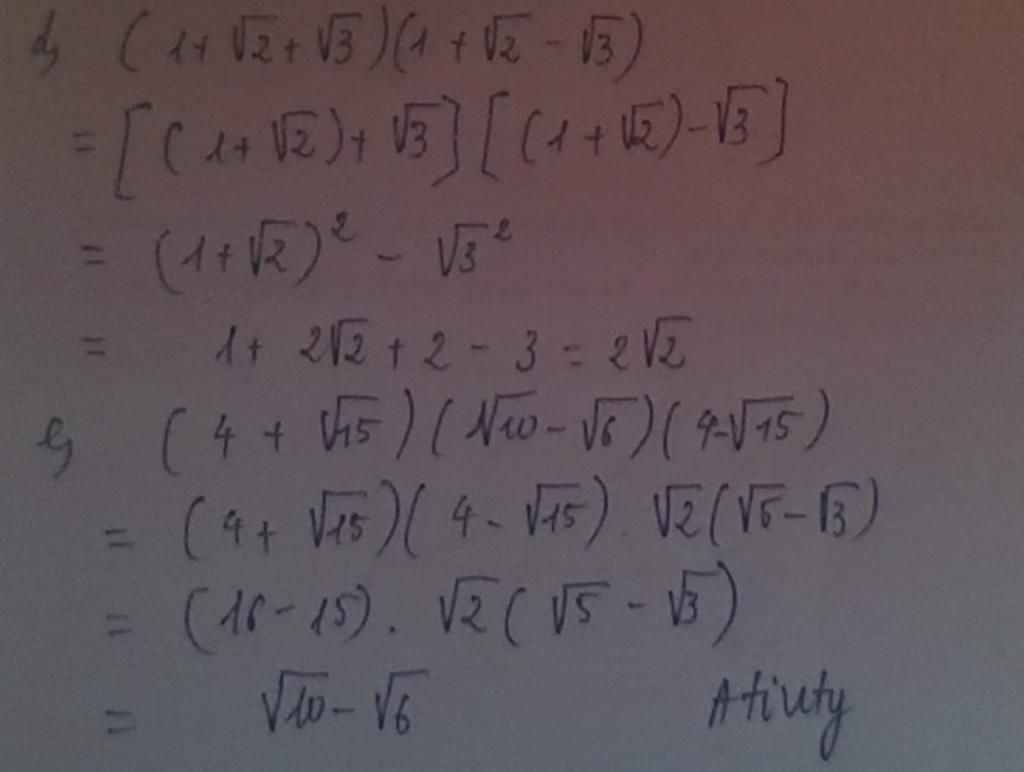 d, (1+√2+√3)(1+√2-√3)
= [(1+√2)+√3][(1+√2)-√3]
= (1+√2)² - √3²
= 1+ 2√2 + 2 - 3 = 2√2
e, (4+√15)(√10-√6)(4-√15)
= (4+√15)(4-√15). √2(√5-√3)
= (16-15). √2(√5-√3)
= √10-√6 Atiuty